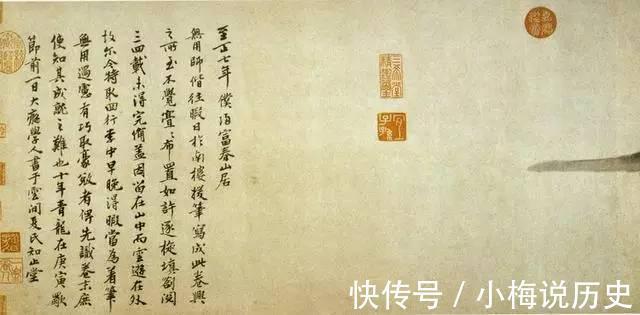 至正七年僕歸富春山居
無用師偕往暇日於南樓援筆寫成此卷興
之所至不覺亹亹布置如許逐旋填劄閱
三四載未得完備蓋因留在山中而雲遊在外
故爾今特取回行李中早晚得暇當為着筆
無用過慮有巧取豪敓者俾先識卷末庶
使知其成就之難也十年青龍在庚寅歜
節前一日大癡學人書于雲間夏氏知止堂
三希堂精鑑璽
宜子孫
快传号 / 小梅说历史